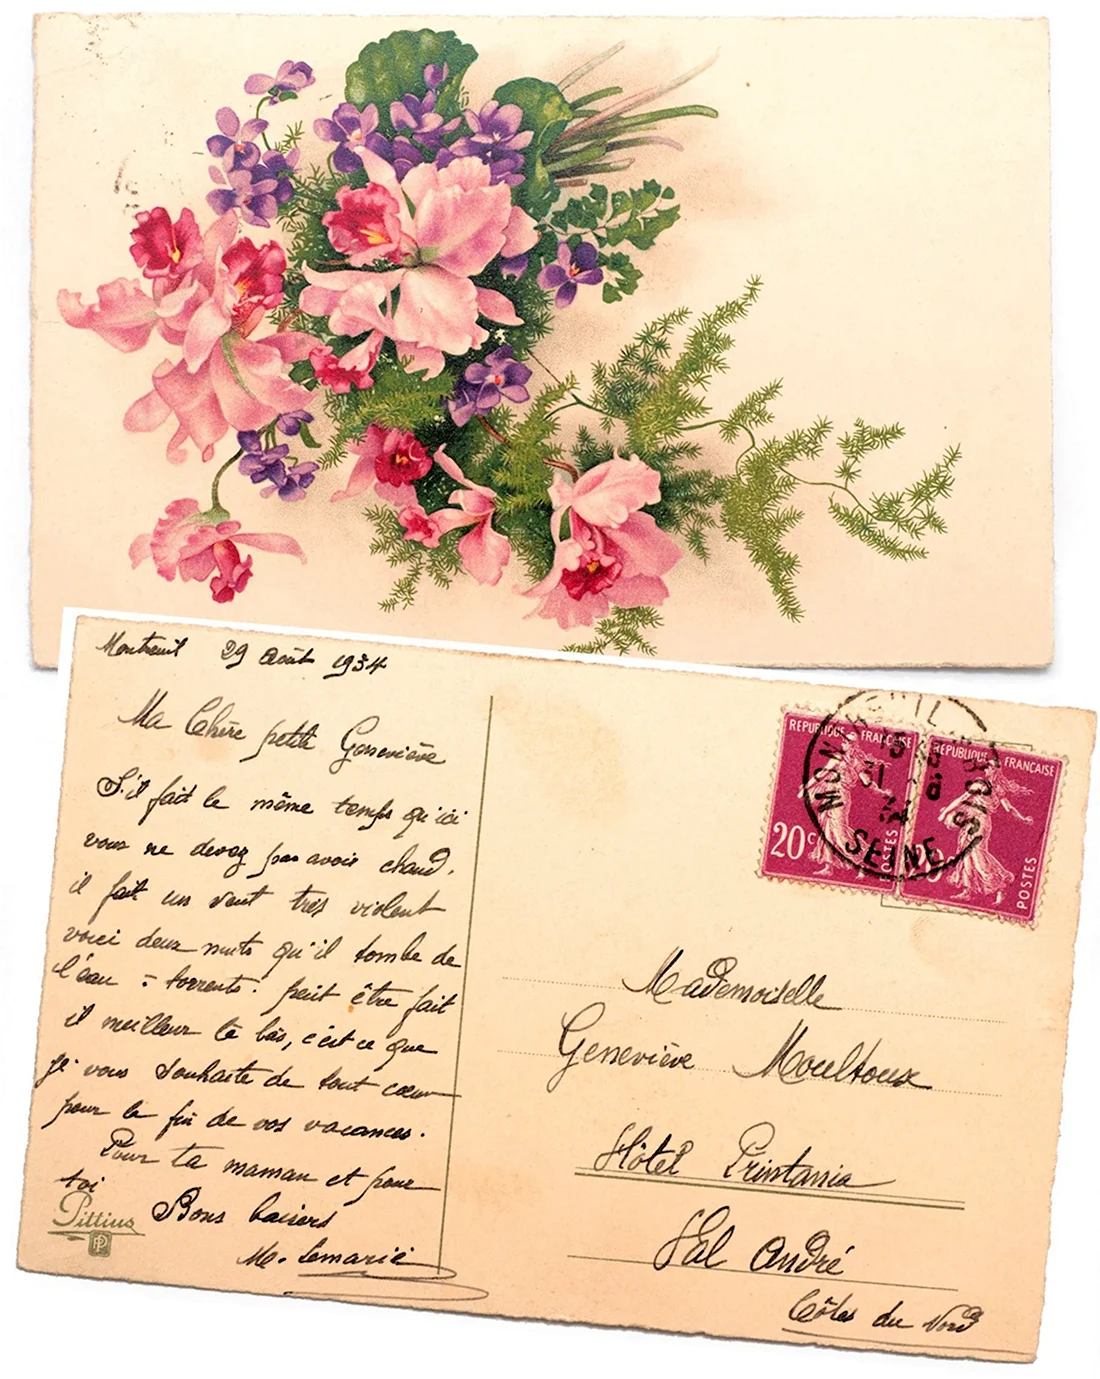 Montreuil 29 Août 1934
Ma Chère petite Geneviève
S'il fait le même temps qu'ici
vous ne devez pas avoir chaud.
il fait un vent très violent
voici deux nuits qu'il tombe de
l'eau à torrents. peut être fait
il meilleur là bàs, c'est ce que
je vous souhaite de tout cœur
pour la fin de vos vacances.
Pour ta maman et pour
toi
Bons baisers
M. Lemarié
Pittius
PP
REPUBLIQUE FRANÇAISE
20c
POSTES
REPUBLIQUE FRANÇAISE
20c
POSTES
MONTREUIL S BOIS
31
34
SEINE
Mademoiselle
Geneviève Moultoux
Hôtel Printania
Val André
Côtes du Nord